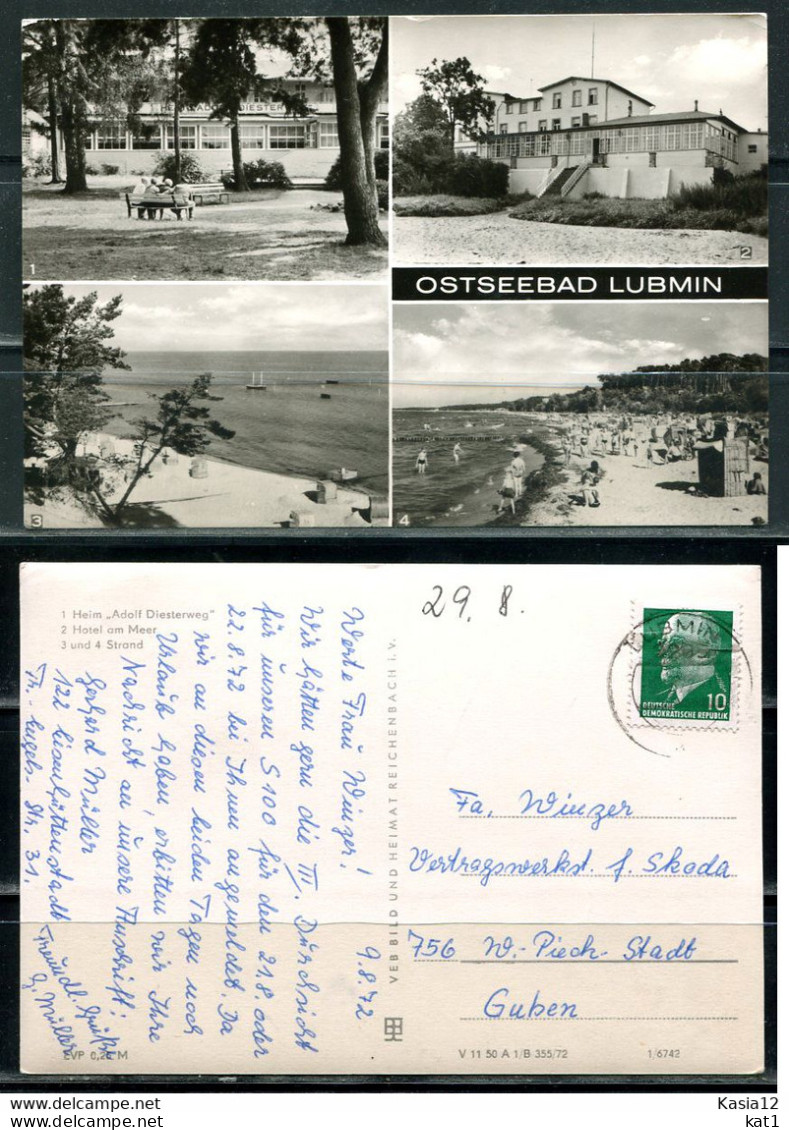 HEIM ADOLF DIESTER
1
2
OSTSEEBAD LUBMIN
3
4
1 Heim „Adolf Diesterweg"
2 Hotel am Meer
3 und 4 Strand
29. 8.
LUBMIN
DEUTSCHE
DEMOKRATISCHE REPUBLIK
10
9.8.72
Werte Frau Winzer!
Wir hätten gern die III. Durchsicht
für unseren S 100 für den 21.8. oder
22.8.72 bei Ihnen angemeldet. Da
wir an diesen beiden Tagen noch
Urlaub haben, erbitten wir Ihre
Nachricht an unsere Anschrift:
Gerhard Müller
122 Eisenhüttenstadt
Str. 31.
Freundl. Grüße
G. Müller
VEB BILD UND HEIMAT REICHENBACH i. V.
Fa. Winzer
Vertragswerkst. f. Skoda
756 W.-Pieck-Stadt
Guben
EVP 0,20 M
V 11 50 A 1/B 355/72
1/6742
Kasia12
kat1